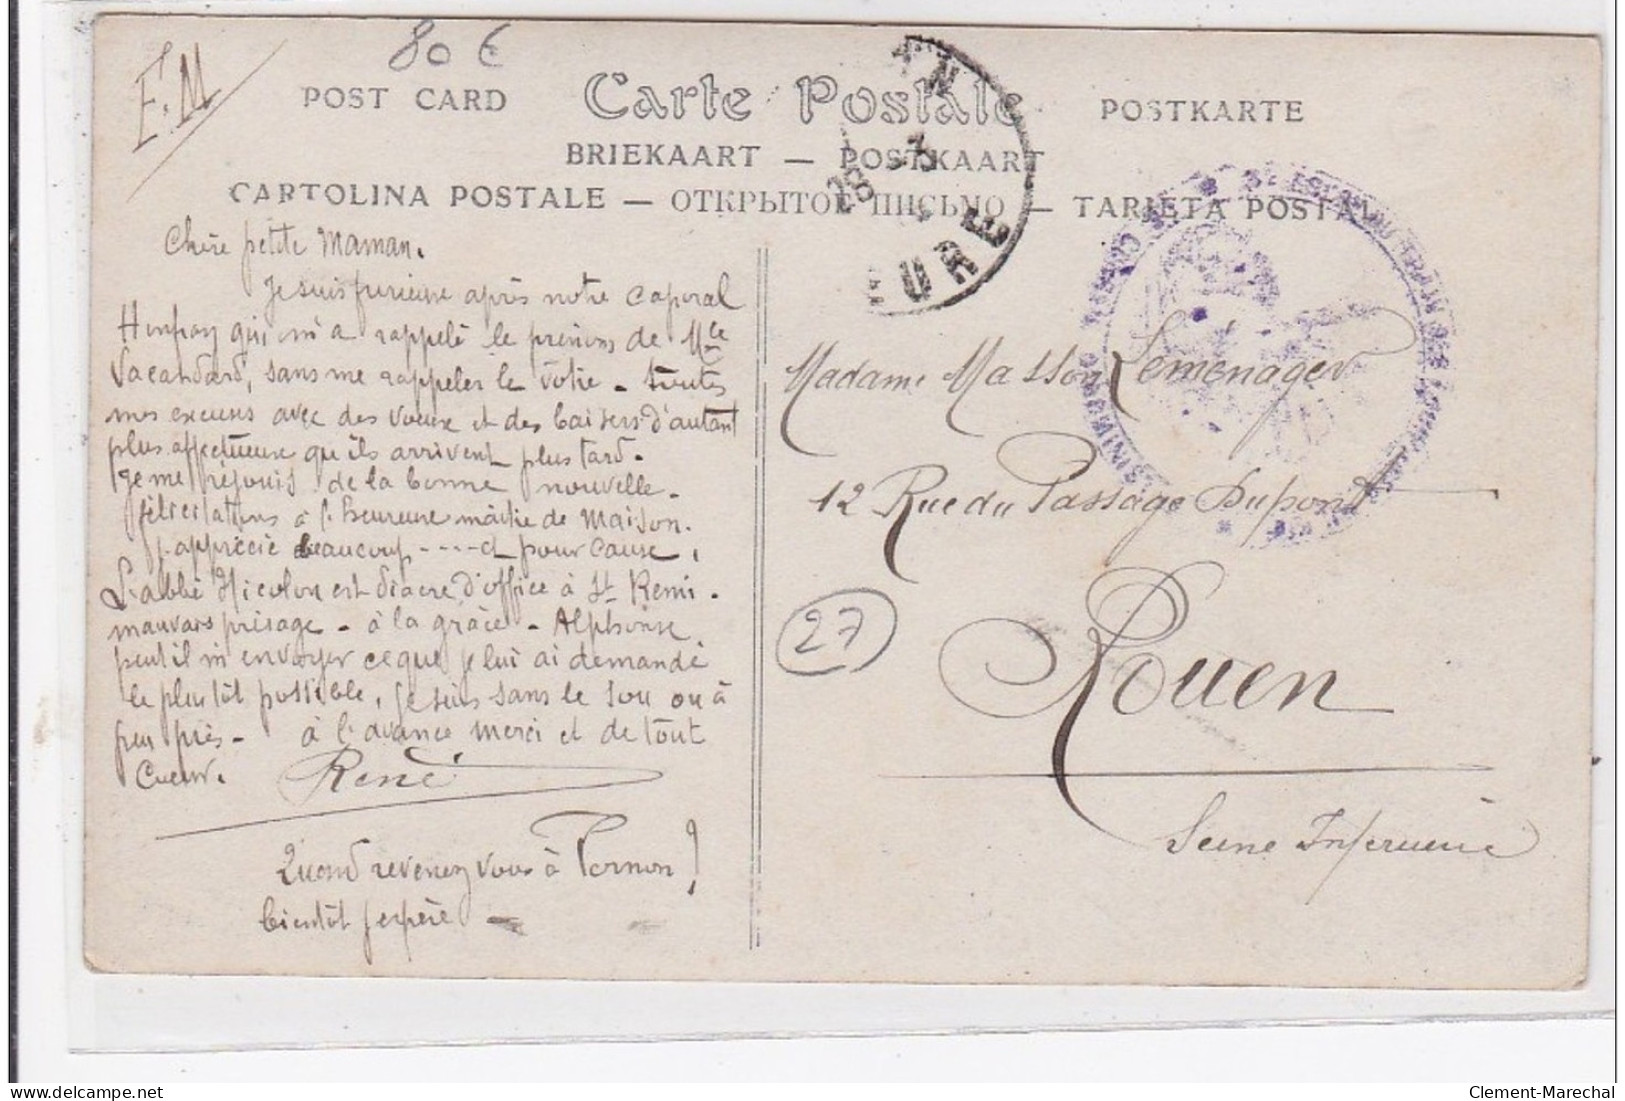 80 €
F.M
POST CARD Carte Postale POSTKARTE
BRIEKAART — POSTKAART
CARTOLINA POSTALE — ОТКРЫТОЕ ПИСЬМО — TARJETA POSTAL
28 -3
EURE
Chère petite Maman.
Je suis furieuse après notre caporal
qui m'a rappelé le prénom de Mlle
Vacandard, sans me rappeler le vôtre - toutes
mes excuses avec des voeux et des baisers d'autant
plus affectueux qu'ils arrivent plus tard.
Je me réjouis de la bonne nouvelle.
félicitations à l'heureuse maître de maison.
J'apprécie beaucoup ---- et pour cause,
L'abbé Nicolon est diacre d'office à St Remi.
mauvais présage - à la grâce - Alphonse
peut il m'envoyer ce que je lui ai demandé
le plutôt possible, je suis sans le sou ou à
peu près - à l'avance merci et de tout
Cueur. René
Quand revenez vous à Pernon?
bientôt j'espère -
Madame Masson Lemenager
12 Rue du Passage Dupont
27
Rouen
Seine Inférieure
Clement-Marechal